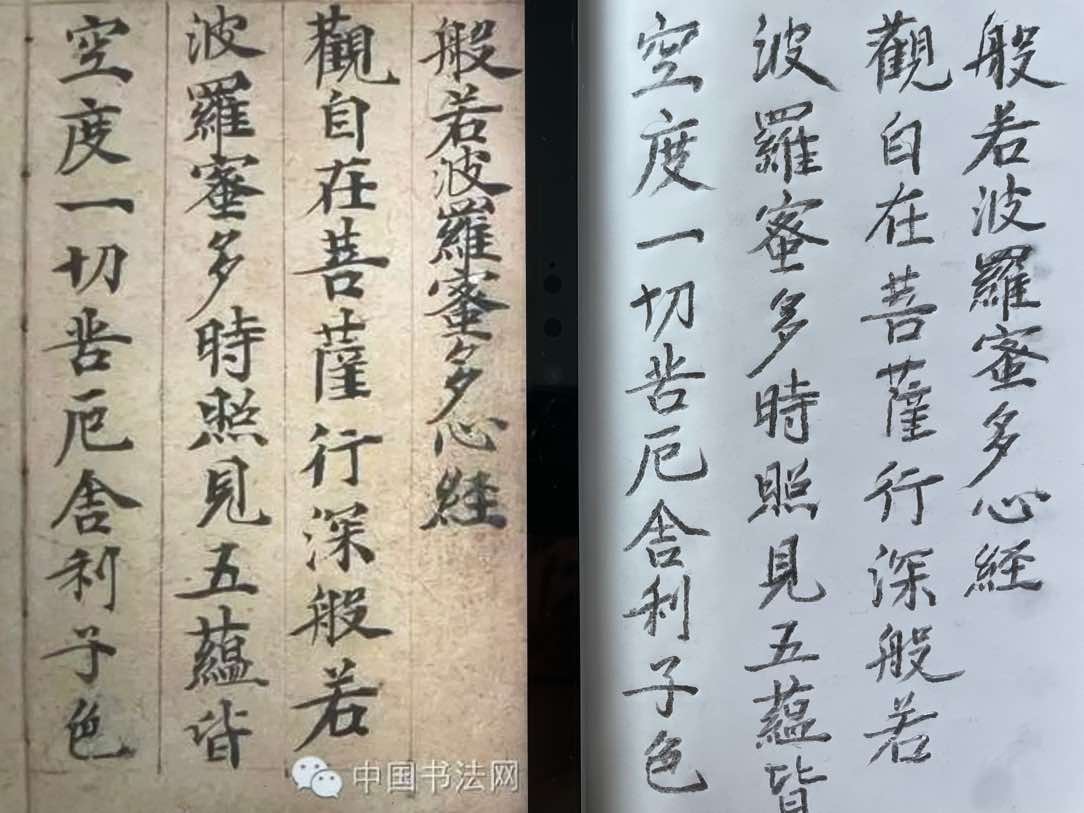 般若波羅蜜多心経
觀自在菩薩行深般若
波羅蜜多時照見五蘊皆
空度一切苦厄舍利子色
中国书法网
般若波羅蜜多心経
觀自在菩薩行深般若
波羅蜜多時照見五蘊皆
空度一切苦厄舍利子色